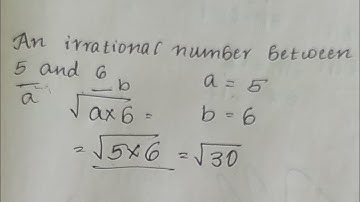 An irrational number between
5 and 6 a = 5
a b
√a×6 = b = 6
= √5×6 = √30